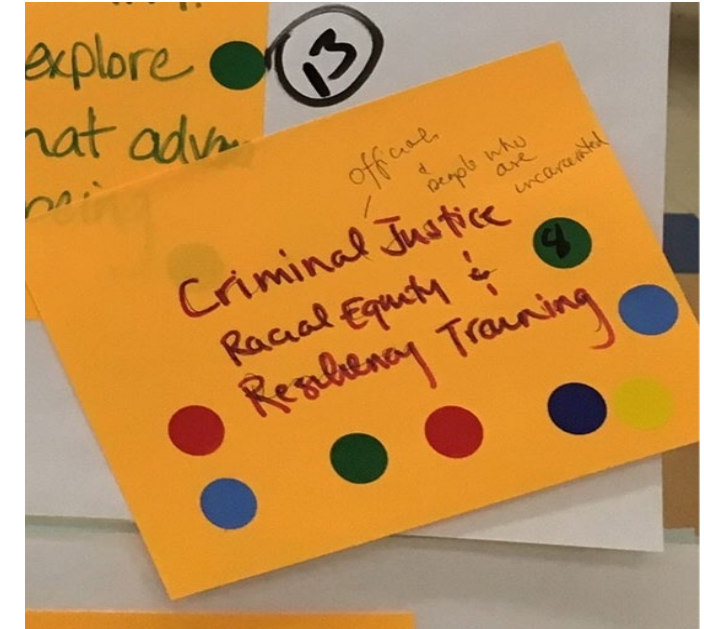 explore
13
officials
& people who
are
incarcerated
Criminal Justice
8
Racial Equity &
Resiliency Training